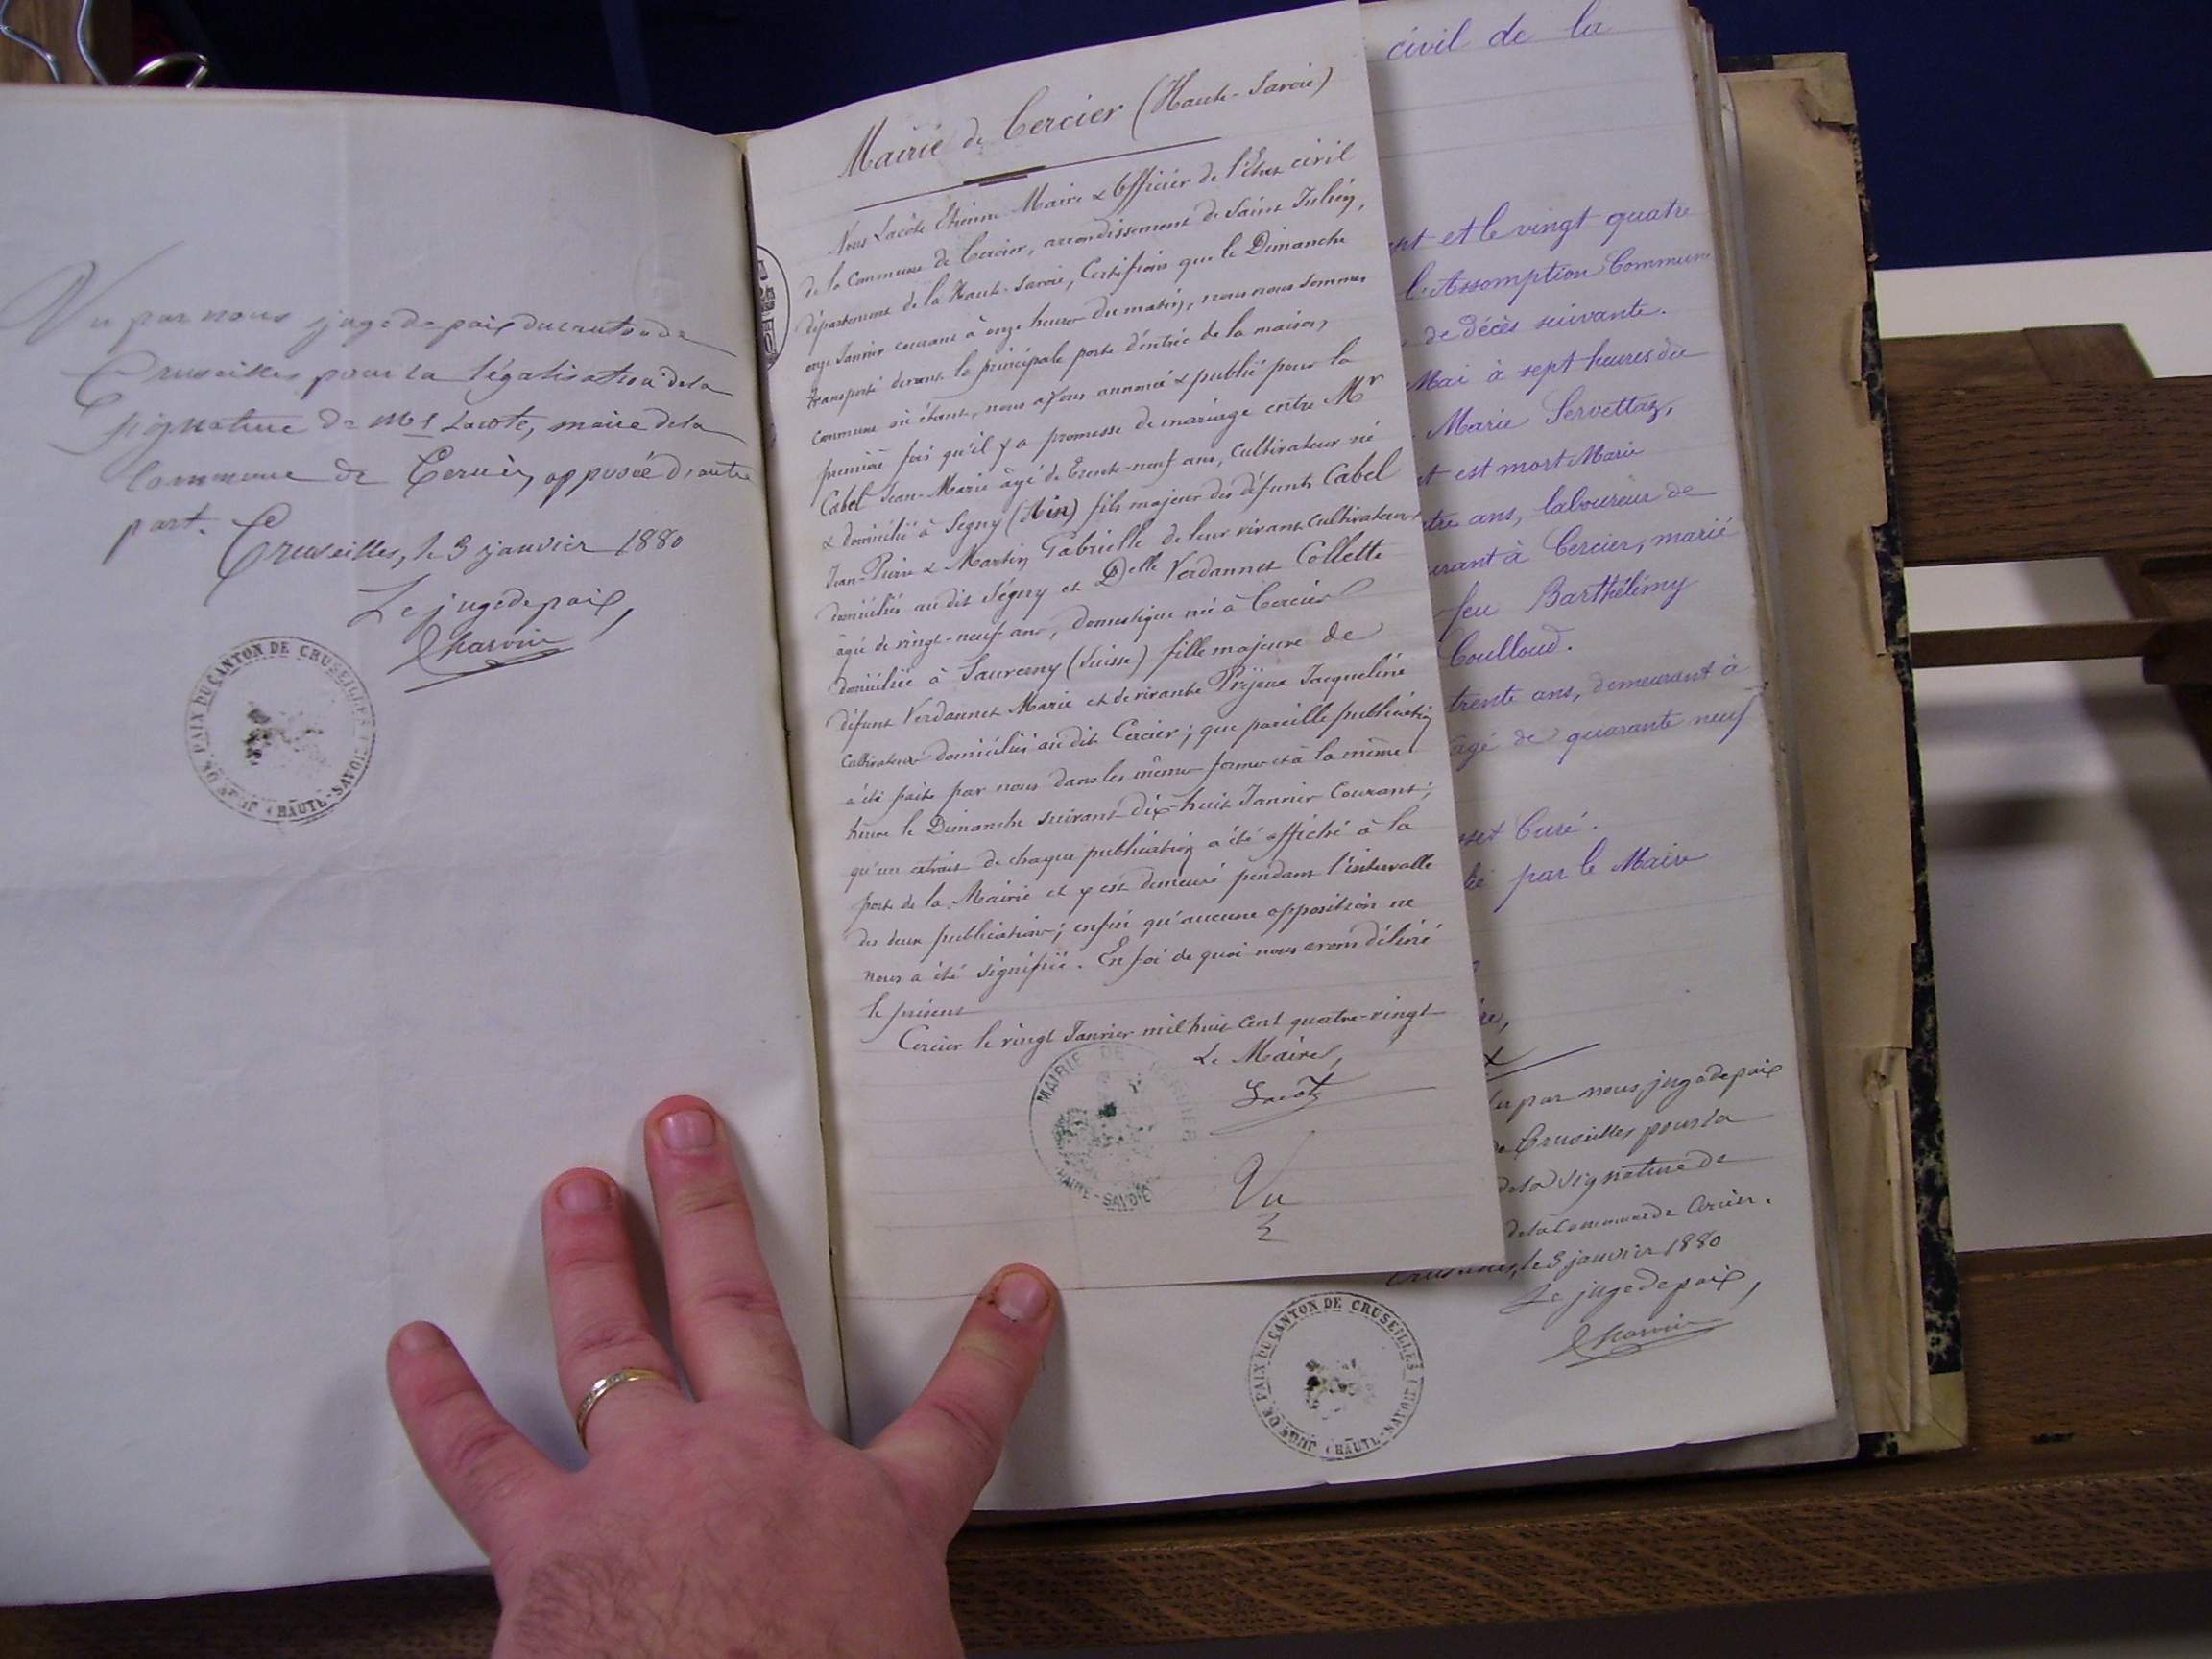 Vu par nous juge de paix du canton de
Cruseilles pour la légalisation de la
signature de Mr Lacote, maire de la
commune de Cercier, apposée d'autre
part.
Cruseilles, le 3 janvier 1880
Le juge de paix,
Charvin
JUST. DE PAIX DU CANTON DE CRUSEILLES (HAUTE-SAVOIE)
Mairie de Cercier (Haute-Savoie)
Nous Lacôte Etienne Maire & Officier de l'Etat civil
de la Commune de Cercier, arrondissement de Saint Julien,
département de la Haute-Savoie, Certifions que le Dimanche
onze Janvier courant à onze heures du matin, nous nous sommes
transporté devant la principale porte d'entrée de la maison
commune où étant, nous avons annoncé & publié pour la
première fois qu'il y a promesse de mariage entre Mr
Cabel Jean-Marie âgé de trente-neuf ans, Cultivateur né
& domicilié à Segny (Ain) fils majeur des défunts Cabel
Jean-Pierre & Martin Gabrielle de leur vivant cultivateurs
domiciliés au dit Ségny et Delle Verdannet Collette
âgée de vingt-neuf ans, domestique née à Cercier
domiciliée à Sauverny (Suisse) fille majeure de
défunt Verdannet Marie et de vivante Prijeux Jacqueline
Cultivateurs domiciliés au dit Cercier; que pareille publication
a été faite par nous dans les mêmes formes et à la même
heure le Dimanche suivant dix-huit Janvier Courant;
qu'un extrait de chaque publication a été affiché à la
porte de la Mairie et y est demeuré pendant l'intervalle
des deux publications; enfin qu'aucune opposition ne
nous a été signifiée. En foi de quoi nous avons délivré
le présent
Cercier le vingt Janvier mil huit cent quatre-vingt
Le Maire,
Lacôte
MAIRIE DE CERCIER
HAUTE-SAVOIE
Vu
civil de la
et le vingt quatre
l'Assomption Commune
de décès suivante.
Mai à sept heures du
Marie Servettaz,
est mort Marie
ans, laboureur de
à Cercier, marié
feu Barthélémy
Coulloud.
trente ans, demeurant à
âgé de quarante neuf
Curé.
par le Maire
par nous juge de paix
de Cruseilles pour la
de la signature de
de la commune de Cercier.
Cruseilles, le 3 janvier 1880
Le juge de paix,
Charvin
JUST. DE PAIX DU CANTON DE CRUSEILLES (HAUTE-SAVOIE)